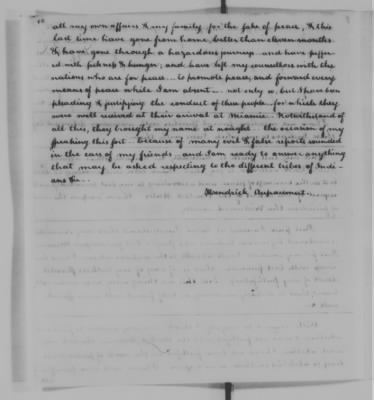 all my own affairs & my family for the sake of peace, & this
last time have gone from home better than eleven months
& have gone through a hazardous journey and have suffer
ed with sickness & hunger; and have left my counsellors with the
nations who are for peace – to promote peace, and forward every
means of peace while I am absent – not only so, but I have been
pleading & justifying the conduct of these people – for which they
were well received at their arrival at Miamie – Notwithstand of
all this, they brought my name at nought – the occasion of my
speaking this sort – because of many evil & false reports sounded
in the ears of my friends – and I am ready to answer anything
that may be asked respecting to the different tribes of Indi-
ans &c –
Hendrick Aupaumut –